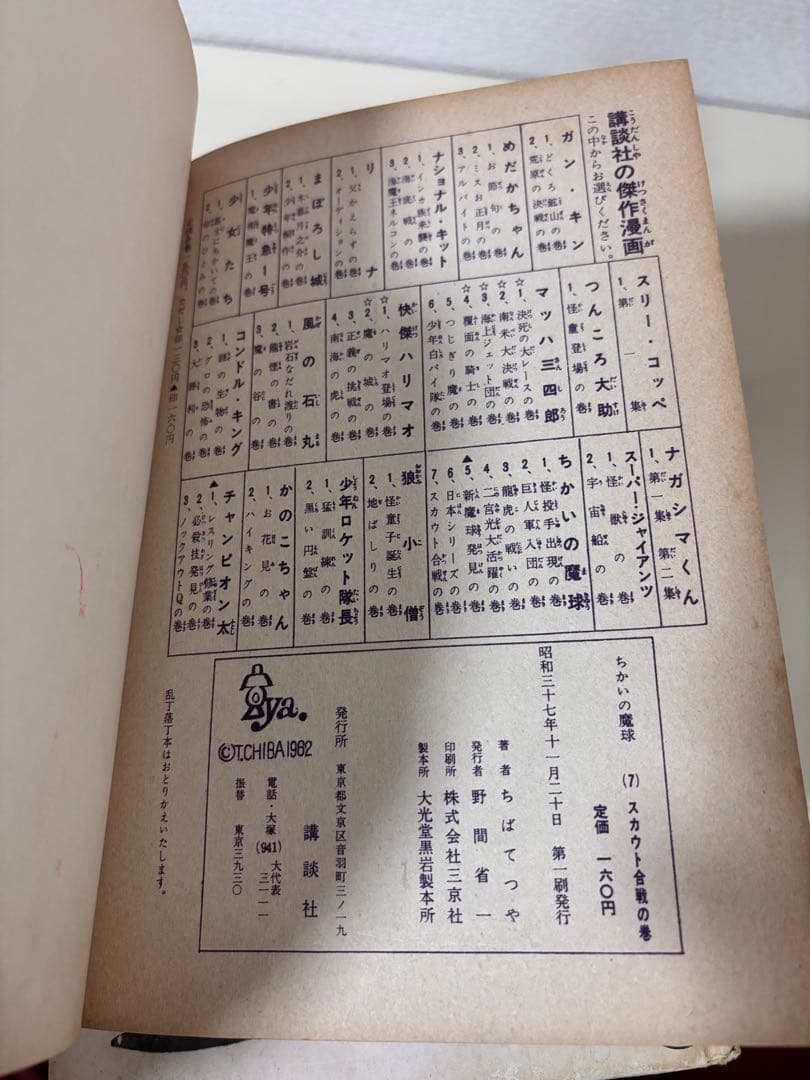 講談社の傑作漫画
この中からお選びください。
ガン・キン
1、どくろ鉱山の巻
2、荒原の決戦の巻
めだかちゃん
1、お節句の巻
2、ミスお正月の巻
3、アルバイトの巻
ナショナル・キット
1、インカ族来襲の巻
2、海底戦の巻
3、海魔王ネルコンの巻
リナ
1、父かえらずの巻
2、オーディションの巻
まぼろし城
1、木暮月之介の巻
2、少年柳作の巻
少年特急1号
1、
2、
少女たち
スリー・コッペ
1、第一集
つんころ大助
1、怪童登場の巻
マッハ三四郎
☆1、決死の大レースの巻
☆2、南米大決戦の巻
☆3、海上ジェット団の巻
☆4、覆面の騎士の巻
5、つじぎり魔の巻
6、少年白バイ隊の巻
快傑ハリマオ
☆1、ハリマオ登場の巻
☆2、魔の城の巻
3、正義の挑戦の巻
4、南海の虎の巻
風の石丸
1、岩石なだれ渡りの巻
2、龍煙の書の巻
3、魔の谷の巻
コンドル・キング
1、謎の生物の巻
2、ゲロの恐怖の巻
3、大勝利の巻
ナガシマくん
1、第一集 第二集
スーパー・ジャイアンツ
1、怪獣の巻
2、宇宙船の巻
ちかいの魔球
1、怪投手出現の巻
2、巨人軍入団の巻
3、龍虎の戦いの巻
4、二宮光大活躍の巻
▲5、新魔球発見の巻
6、日本シリーズの巻
7、スカウト合戦の巻
狼小僧
1、怪童子誕生の巻
2、地ばしりの巻
少年ロケット隊長
1、猛訓練の巻
2、黒い円盤の巻
かのこちゃん
1、お花見の巻
2、ハイキングの巻
チャンピオン太
▲1、レスリング修業の巻
2、必殺技発見の巻
3、ノックアウトQの巻
一三〇円▲印一六〇円
ちかいの魔球 (7) スカウト合戦の巻
定価 一六〇円
昭和三十七年十一月二十日 第一刷発行
著者 ちばてつや
発行者 野間省一
印刷所 株式会社三京社
製本所 大光堂黒岩製本所
発行所 東京都文京区音羽町三ノ一九
講談社
電話・大塚(941)大代表 三一一一
振替 東京三九三〇
ya.
©T.CHIBA1962
乱丁落丁本はおとりかえいたします。